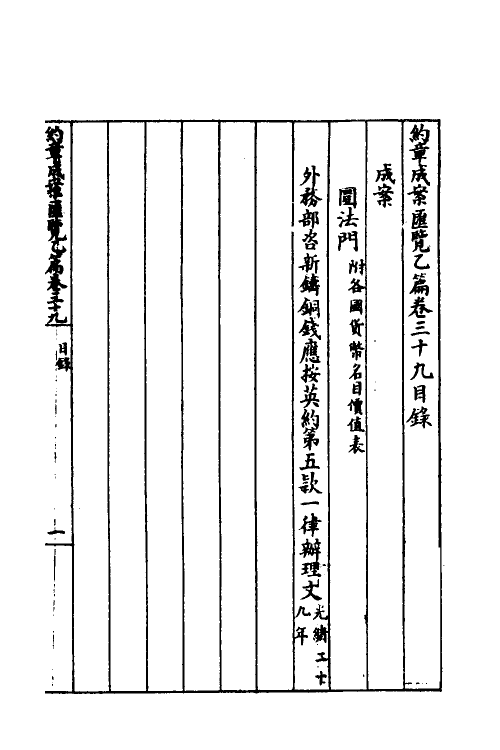 約章成案匯覽乙篇卷三十九目錄
成案
圜法門 附各國貨幣名目價值表
外務部咨新鑄銅錢應按英約第五款一律辦理文 光緒二十九年
約章成案匯覽乙篇卷三十九 目錄 一